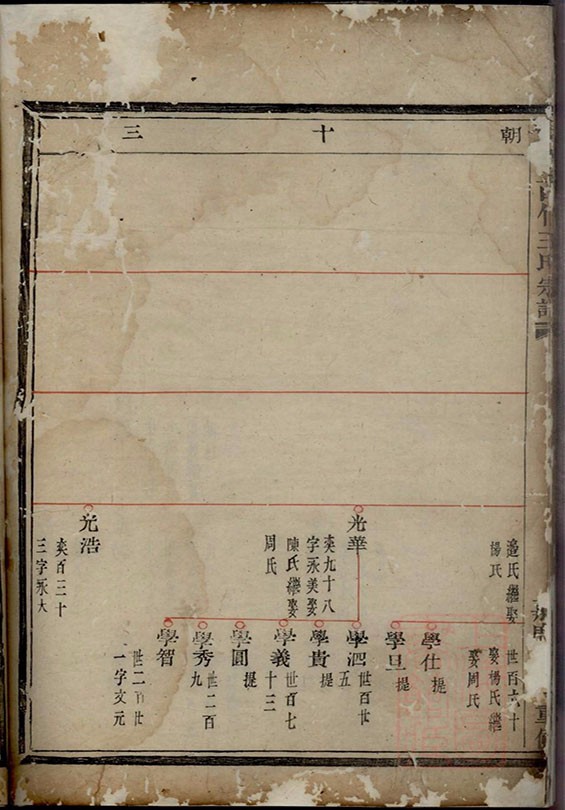 朝 十 三
王氏宗譜
邉氏繼娶
楊氏
光華
奕九十八
字永美娶
陳氏繼娶
周氏
光浩
奕百三十
三字永大
世百六十
娶楊氏繼
娶周氏
學仕 提
學旦 提
學泗 世百世
五
學貴 提
學義 世百七
十三
學圓 提
學秀 世二百
九
學智 世二百世
一字文元
重修